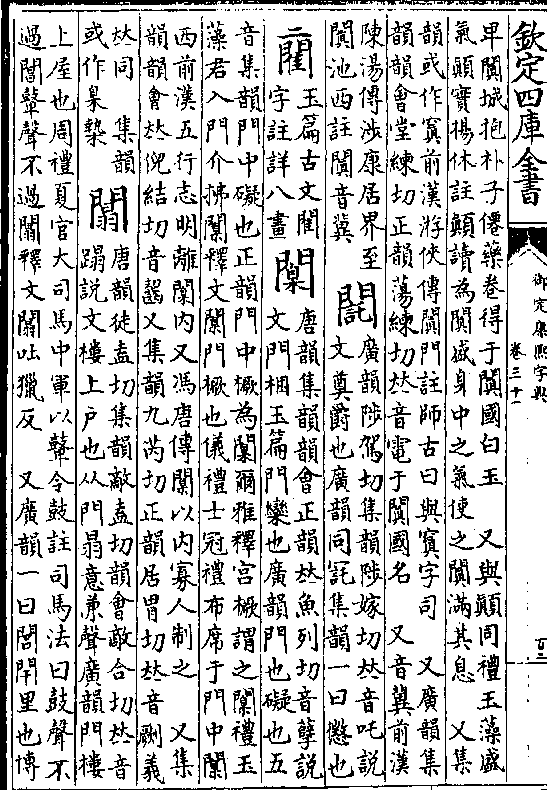 欽定四庫全書
御定康熙字典
卷三十一
卑闐城抱朴子僊藥卷得于闐國白玉　又與顚同禮玉藻盛
氣顚實揚休註顚讀為闐盛身中之氣使之闐滿其息　又集
韻或作窴前漢游俠傳闐門註師古曰與窴字同　又廣韻集
韻韻會堂練切正韻蕩練切𠀤音電于闐國名　又音冀前漢
陳湯傳涉康居界至闐池西註闐音冀
䦉廣韻陟駕切集韻陟嫁切𠀤音吒說文奠爵也廣韻同䆛集韻一曰懲也
玉篇古文閨字註詳八畫
闑唐韻集韻韻會正韻𠀤魚列切音孽說文門梱玉篇門橜也廣韻門也礙也五
音集韻門中礙也正韻門中橛為闑爾雅釋宮橛謂之闑禮玉
藻君入門介拂闑釋文闑門橛也儀禮士冠禮布席于門中闑
西前漢五行志明離闑內又馮唐傳闑以內寡人制之　又集
韻韻會𠀤倪結切音齧又集韻九芮切正韻居胃切𠀤音劌義
𠀤同　集韻或作臬槷
闒唐韻徒盍切集韻敵盍切韻會敵合切𠀤音蹋說文樓上戶也从門𦐇意兼聲廣韻門樓
上屋也周禮夏官大司馬中軍以鼙令鼓註司馬法曰鼓聲不
過閶鼙聲不過闒釋文闒吐獵反　又廣韻一曰閭閈里也博